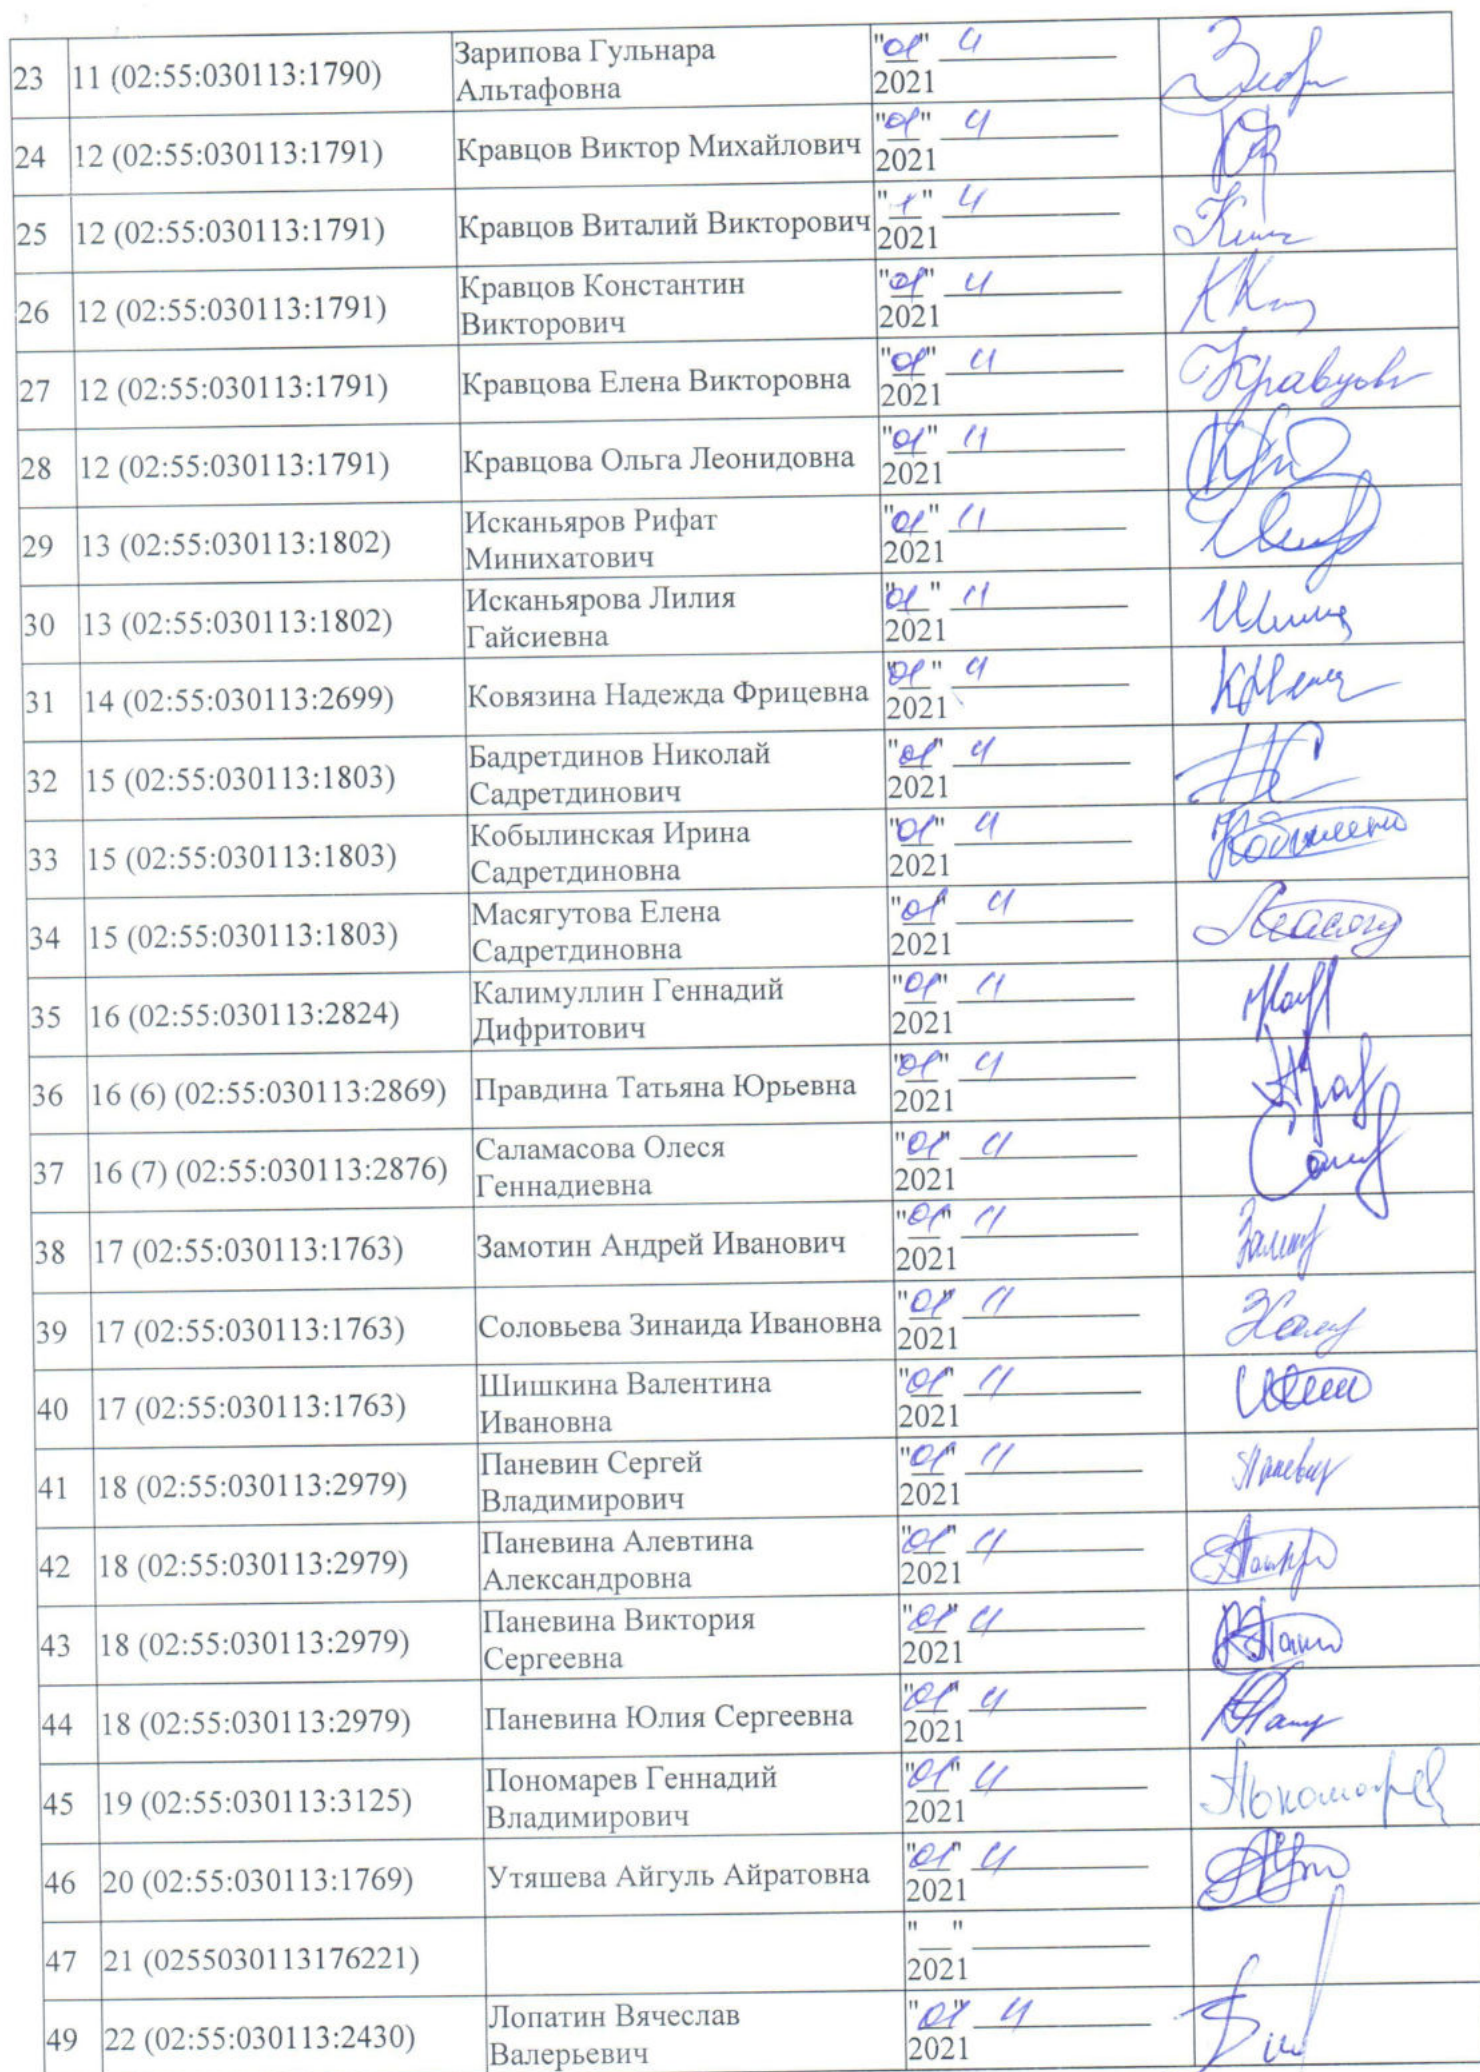 23 11 (02:55:030113:1790) Зарипова Гульнара Альтафовна "01" 4 2021
24 12 (02:55:030113:1791) Кравцов Виктор Михайлович "01" 4 2021
25 12 (02:55:030113:1791) Кравцов Виталий Викторович "1" 4 2021
26 12 (02:55:030113:1791) Кравцов Константин Викторович "01" 4 2021
27 12 (02:55:030113:1791) Кравцова Елена Викторовна "01" 4 2021
28 12 (02:55:030113:1791) Кравцова Ольга Леонидовна "01" 4 2021
29 13 (02:55:030113:1802) Исканьяров Рифат Минихатович "01" 4 2021
30 13 (02:55:030113:1802) Исканьярова Лилия Гайсиевна "01" 4 2021
31 14 (02:55:030113:2699) Ковязина Надежда Фрицевна "01" 4 2021
32 15 (02:55:030113:1803) Бадретдинов Николай Садретдинович "01" 4 2021
33 15 (02:55:030113:1803) Кобылинская Ирина Садретдиновна "01" 4 2021
34 15 (02:55:030113:1803) Масягутова Елена Садретдиновна "01" 4 2021
35 16 (02:55:030113:2824) Калимуллин Геннадий Дифритович "01" 4 2021
36 16 (6) (02:55:030113:2869) Правдина Татьяна Юрьевна "01" 4 2021
37 16 (7) (02:55:030113:2876) Саламасова Олеся Геннадиевна "01" 4 2021
38 17 (02:55:030113:1763) Замотин Андрей Иванович "01" 4 2021
39 17 (02:55:030113:1763) Соловьева Зинаида Ивановна "01" 4 2021
40 17 (02:55:030113:1763) Шишкина Валентина Ивановна "01" 4 2021
41 18 (02:55:030113:2979) Паневин Сергей Владимирович "01" 4 2021
42 18 (02:55:030113:2979) Паневина Алевтина Александровна "01" 4 2021
43 18 (02:55:030113:2979) Паневина Виктория Сергеевна "01" 4 2021
44 18 (02:55:030113:2979) Паневина Юлия Сергеевна "01" 4 2021
45 19 (02:55:030113:3125) Пономарев Геннадий Владимирович "01" 4 2021
46 20 (02:55:030113:1769) Утяшева Айгуль Айратовна "01" 4 2021
47 21 (0255030113176221) "__" 2021
49 22 (02:55:030113:2430) Лопатин Вячеслав Валерьевич "01" 4 2021